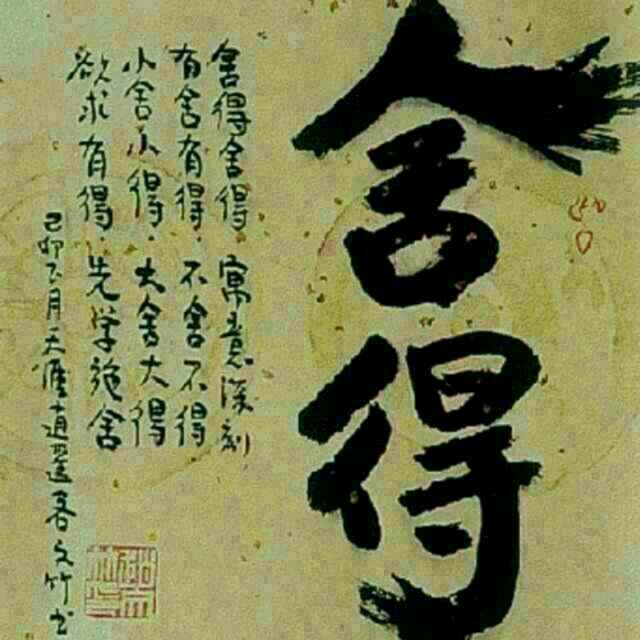 舍得
舍得舍得 寓意深刻
有舍有得 不舍不得
小舍小得 大舍大得
欲求有得 先学施舍
己卯
月天涯逍遥客文竹书